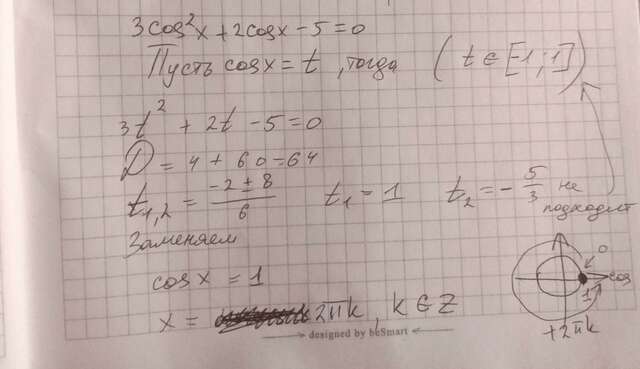 3cos²x + 2cosx - 5 = 0
Пусть cosx = t, тогда (t ∈ [-1;1])
3t² + 2t - 5 = 0
D = 4 + 60 = 64
t₁,₂ = (-2 ± 8)/6 t₁ = 1 t₂ = -5/3 не подходит
Заменяем
cosx = 1
x = 2πk, k ∈ Z
0
cos
1
+2πk
designed by beSmart